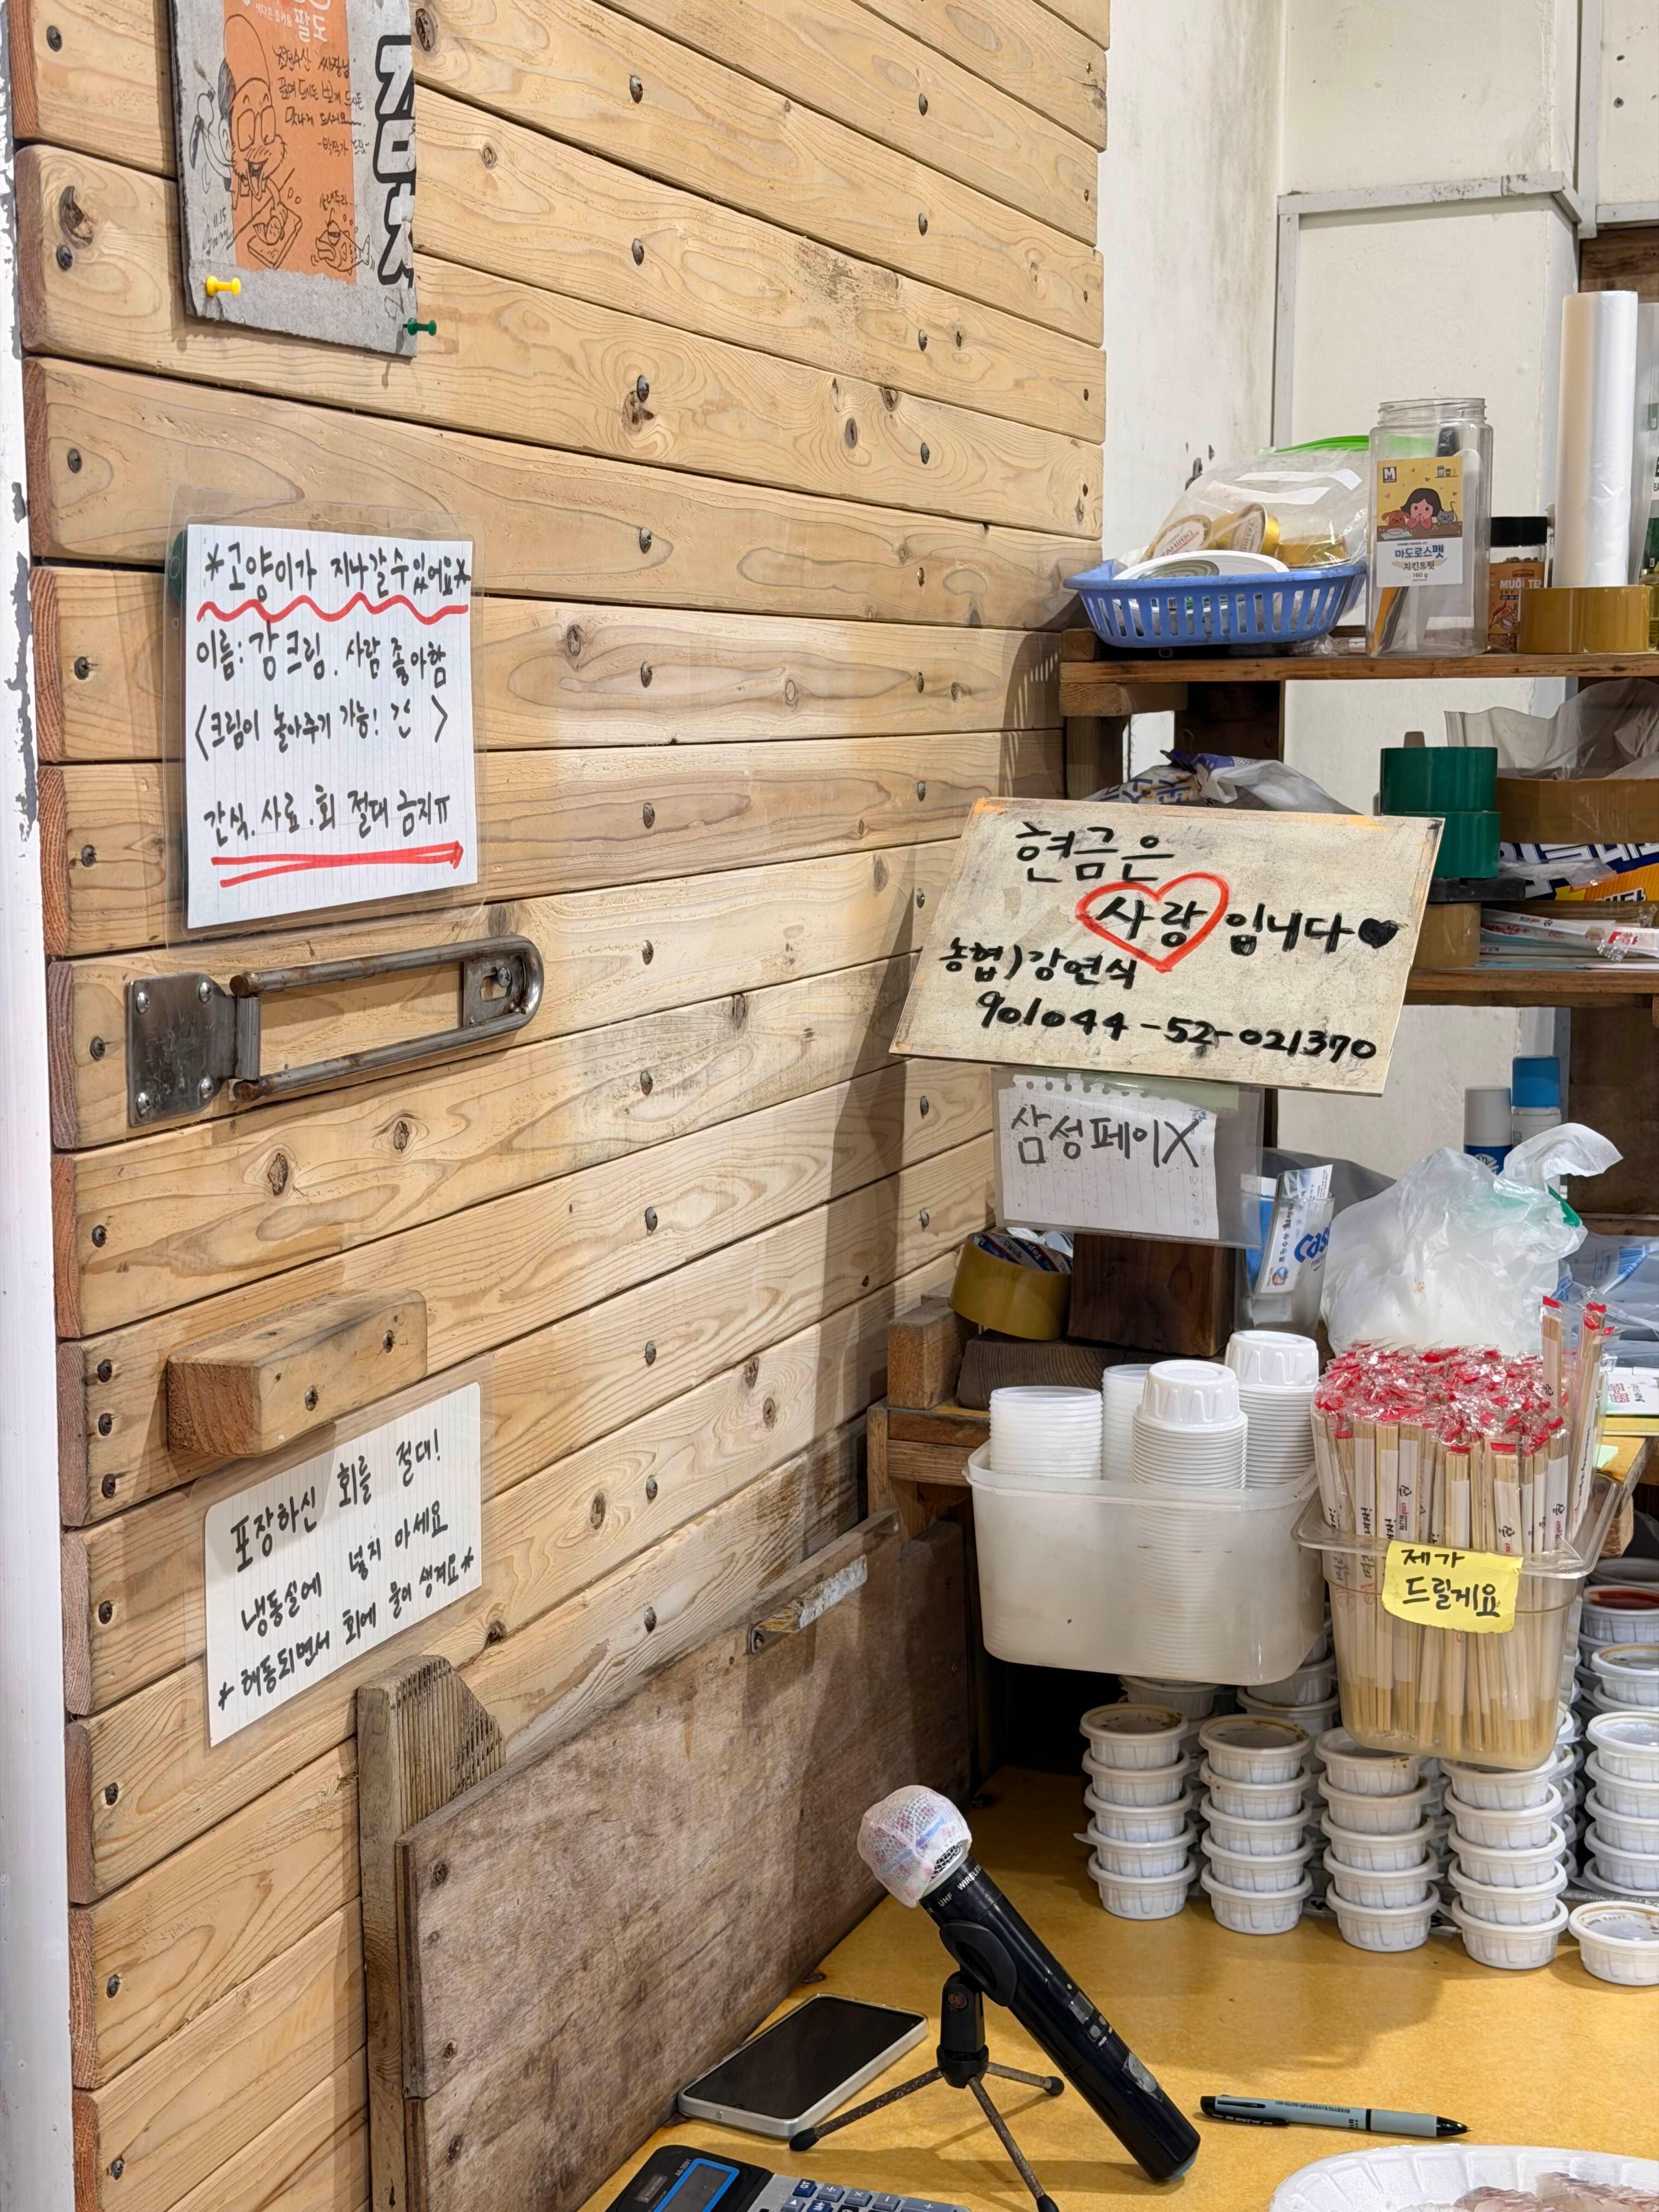 팔도
맛나게 드세요
*고양이가 지나갈 수 있어요*
이름: 강크림. 사람 좋아함
<크림이 놀아주기 가능! >
간식. 사료. 회 절대 금지ㅠ
현금은
사랑입니다♥
농협)강연식
901044-52-021370
삼성페이X
포장하신 회를 절대!
냉동실에 넣지 마세요
*해동되면서 회에 물이 생겨요*
제가
드릴게요
M
마도로스펫
치킨트릿
160 g
UHF WIRELESS